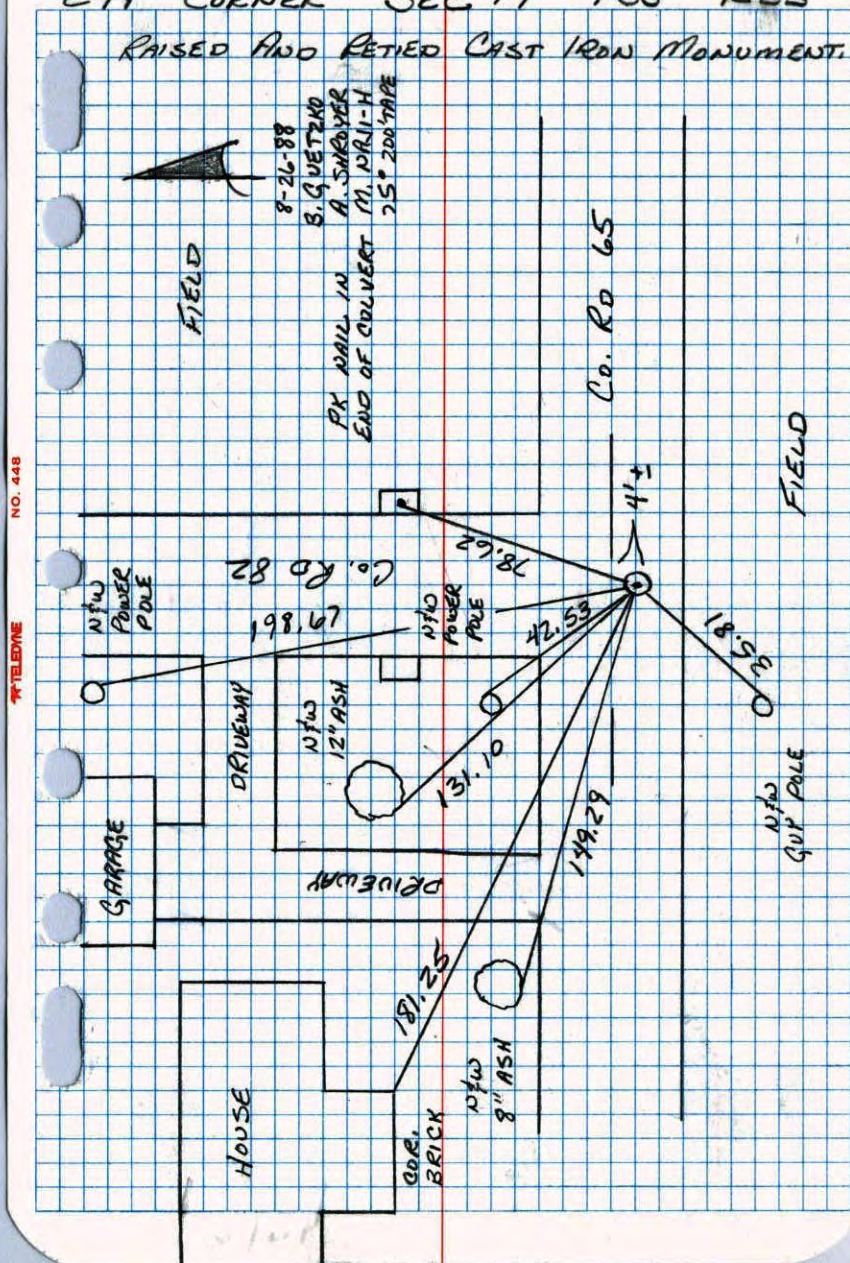 RAISED AND RETIED CAST IRON MONUMENT.
8-26-88
B. GUETZKO
A. SHROYER
M. NRII-H
75° 200' TAPE
FIELD
PK NAIL IN
END OF COLVERT
Co. RD 65
FIELD
4' ±
78.62
Co. RD 82
N&W
POWER
POLE
198.67
N&W
POWER
POLE
42.53
35.81
N&W
GUY POLE
DRIVEWAY
N&W
12" ASH
131.10
149.29
GARAGE
DRIVEWAY
181.25
N&W
8" ASH
HOUSE
COR.
BRICK
NO. 448
TELEDYNE